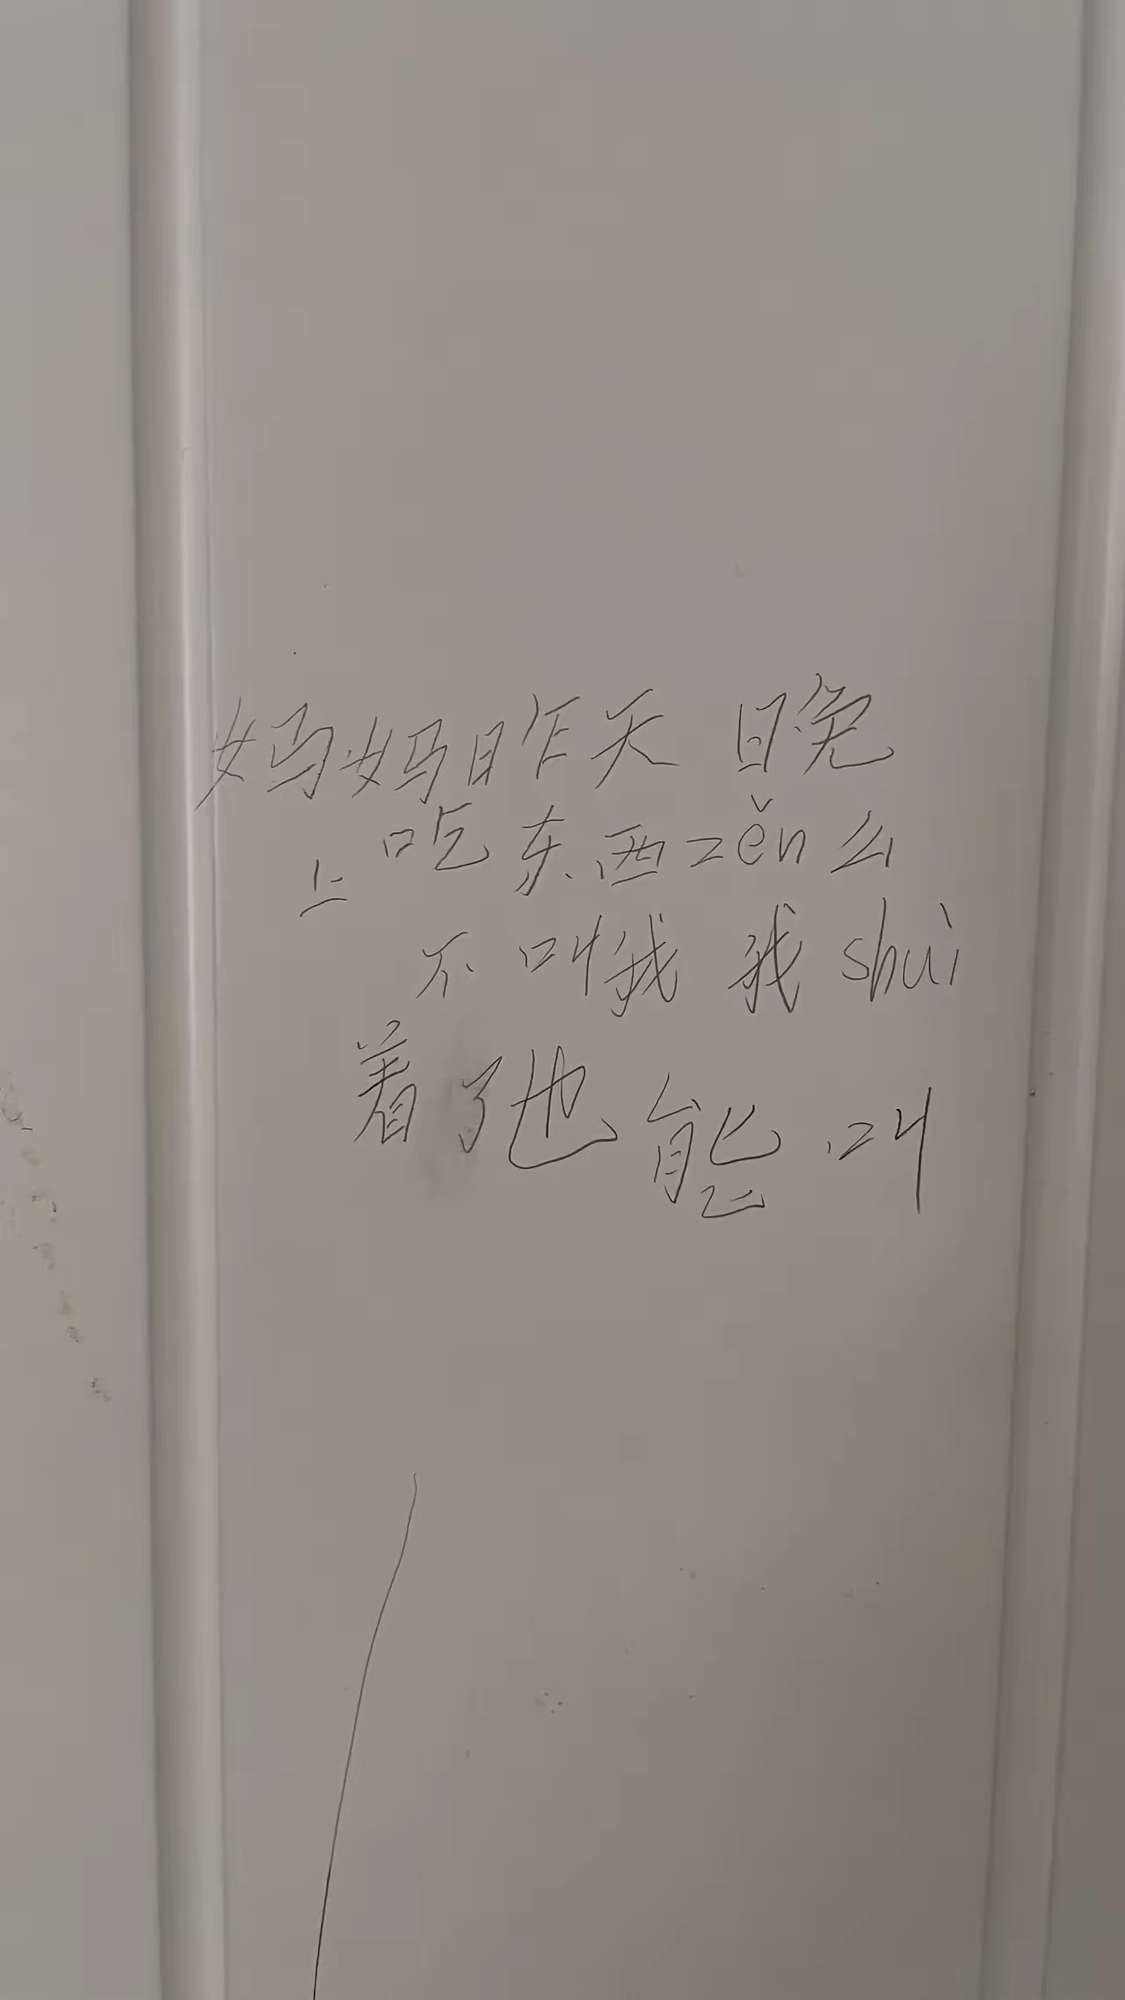 妈妈昨天晚
上吃东西zěn么
不叫我我shuì
着了也能叫